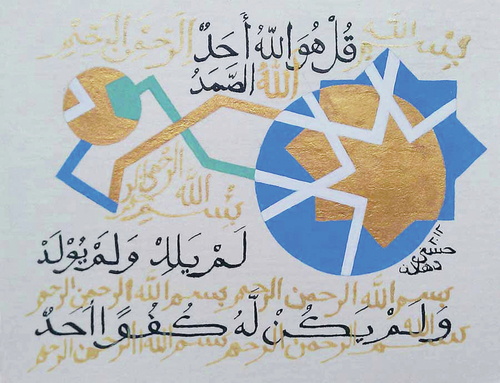 بسم الله الرحمن الرحيم
قُلْ هُوَ اللَّهُ أَحَدٌ
اللَّهُ الصَّمَدُ
بسم الله الرحمن الرحيم
لَمْ يَلِدْ وَلَمْ يُولَدْ
بسم الله الرحمن الرحيم بسم الله الرحمن الرحيم
وَلَمْ يَكُنْ لَهُ كُفُوًا أَحَدٌ
بسم الله الرحمن الرحيم بسم الله الرحمن الرحيم